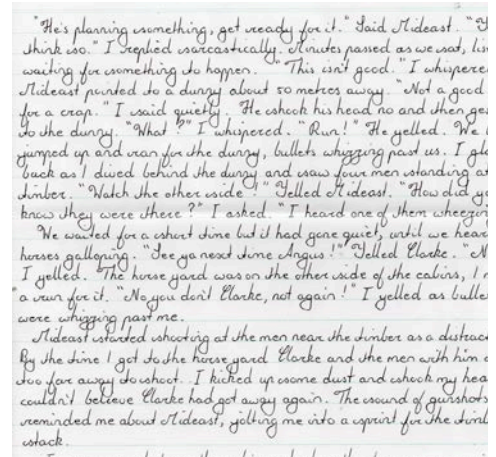 "He's planning something, get ready for it." Said Mideast. "Y
think so." I replied sarcastically. Minutes passed as we sat, lis
waiting for something to happen. "This isn't good." I whispere
Mideast pointed to a dunny about 50 metres away. "Not a good
for a crap." I said quietly. He shook his head no and then ges
to the dunny. "What?" I whispered. "Run!" He yelled. We
jumped up and ran for the dunny, bullets whizzing past us. I gl
back as I dived behind the dunny and saw four men standing at
timber. "Watch the other side!" Yelled Mideast. "How did yo
know they were there?" I asked. "I heard one of them wheezin
We waited for a short time but it had gone quiet, until we hear
horses galloping. "See ya next time Angus!" Yelled Clarke. "N
I yelled. The horse yard was on the other side of the cabins, I m
a run for it. "No you don't Clarke, not again!" I yelled as bulle
were whizzing past me.
Mideast started shooting at the men near the timber as a distract
By the time I got to the horse yard Clarke and the men with him
too far away to shoot. I kicked up some dust and shook my hea
couldn't believe Clarke had got away again. The sound of gunshots
reminded me about Mideast, jolting me into a sprint for the timb
stack.